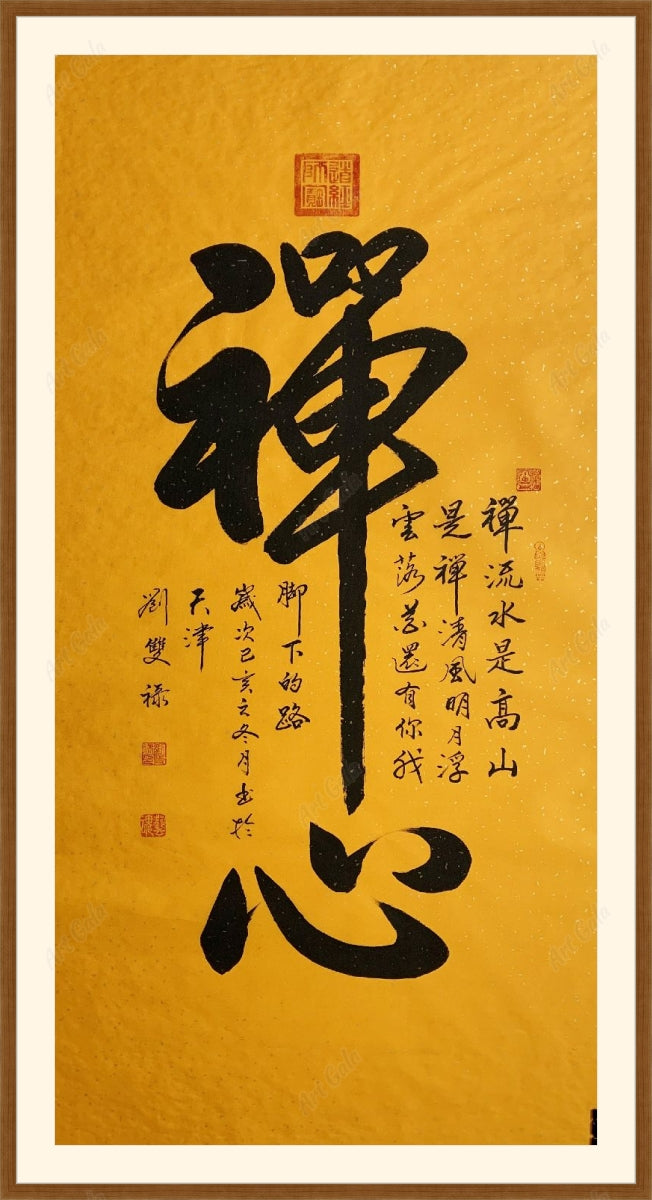 道經師寶
禪心
禪流水是高山
是禪清風明月浮
雲落花還有你我
脚下的路
歲次己亥之冬月书於
天津
劉雙禄
Art Gala